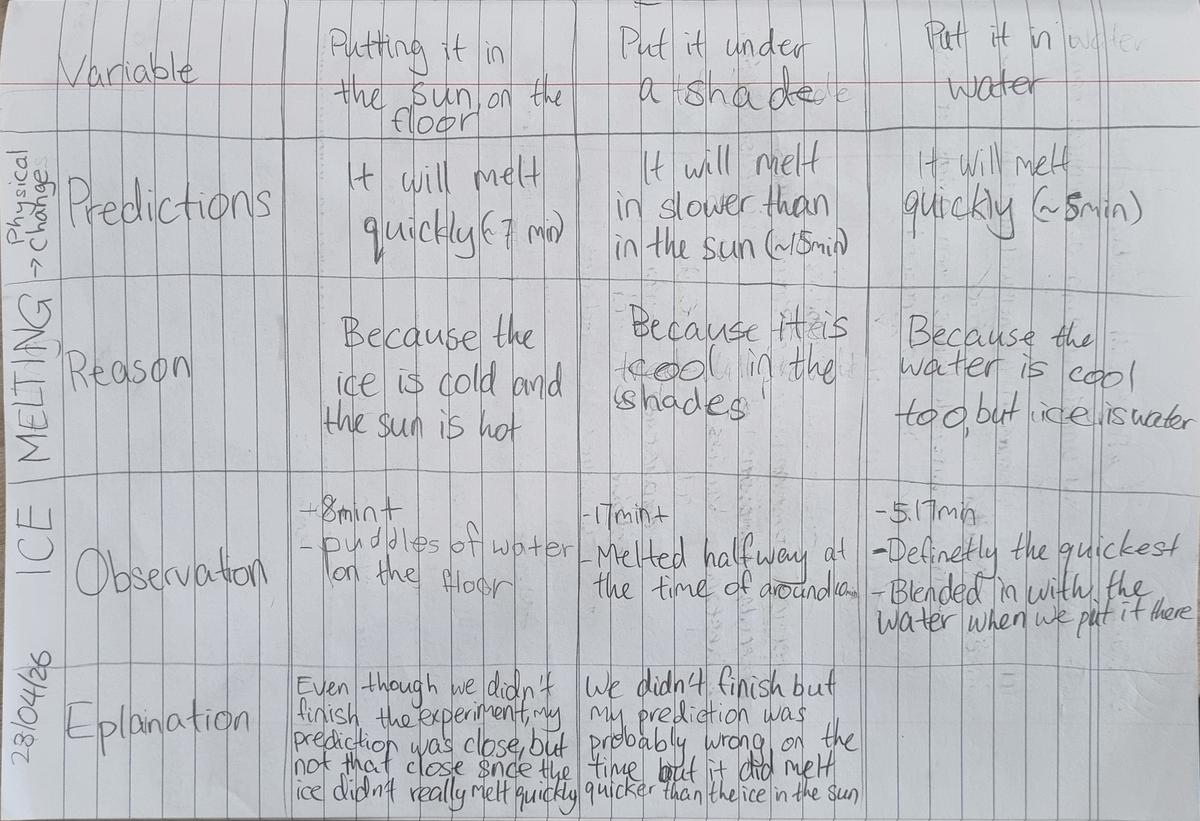 Variable
Putting it in
the sun, on the
floor
Put it under
a shade
Put it in water
water
Predictions
It will melt
quickly (~7 min)
It will melt
in slower than
in the sun (~15min)
It will melt
quickly (~5min)
Reason
Because the
ice is cold and
the sun is hot
Because it is
cool in the
shades
Because the
water is cool
too, but ice is water
Observation
-8min+
-puddles of water
on the floor
-17min+
-Melted halfway at
the time of around
-5.17min
-Definetly the quickest
-Blended in with the
water when we put it there
Eplaination
Even though we didn't
finish the experiment, my
prediction was close, but
not that close snce the
ice didn't really melt quickly
We didn't finish but
my prediction was
probably wrong on the
time but it did melt
quicker than the ice in the sun
28/04/26 ICE MELTING → Physical
Change